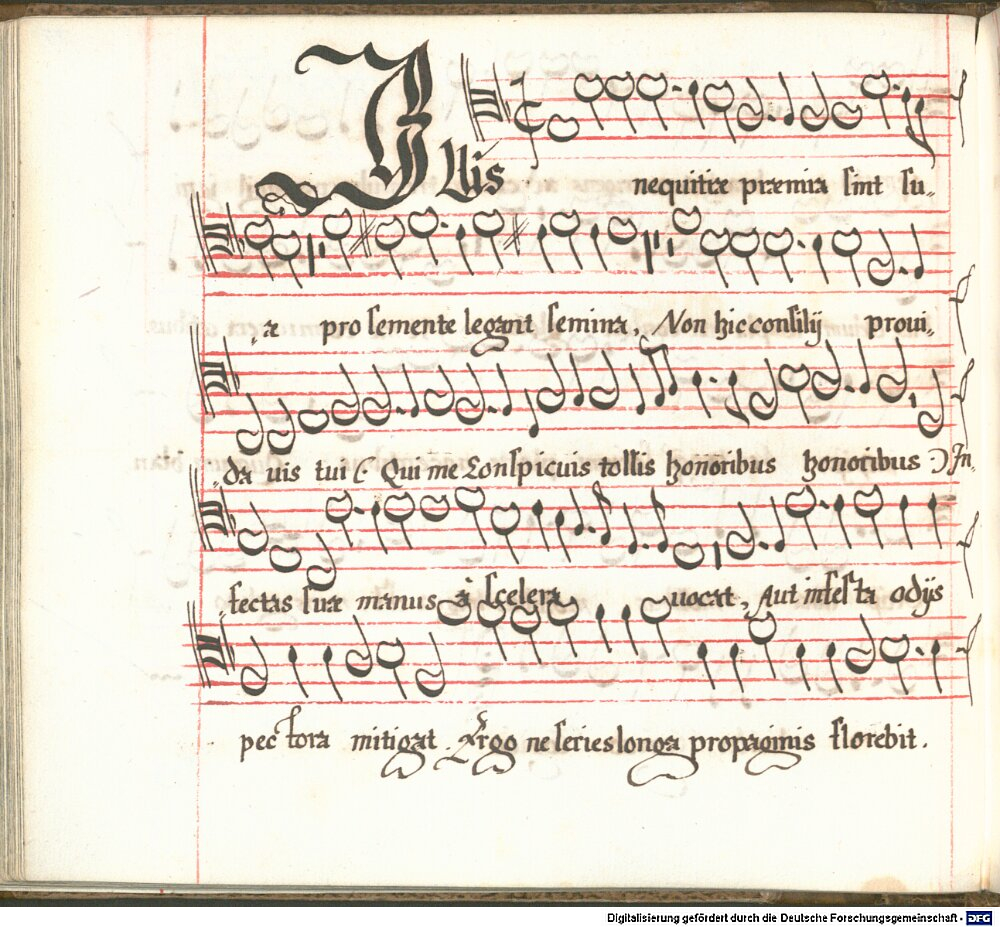 Illis nequitiæ præmia sint su-
æ pro semente legant semina, Non hic consilij proui-
da vis tui ( Qui me Conspicuis tollis honoribus honoribus ) In-
fectas suæ manus à scelera uocat, Aut infesta odijs
pectora mitigat. Ergo ne series longa propaginis florebit.
Digitalisierung gefördert durch die Deutsche Forschungsgemeinschaft - DFG